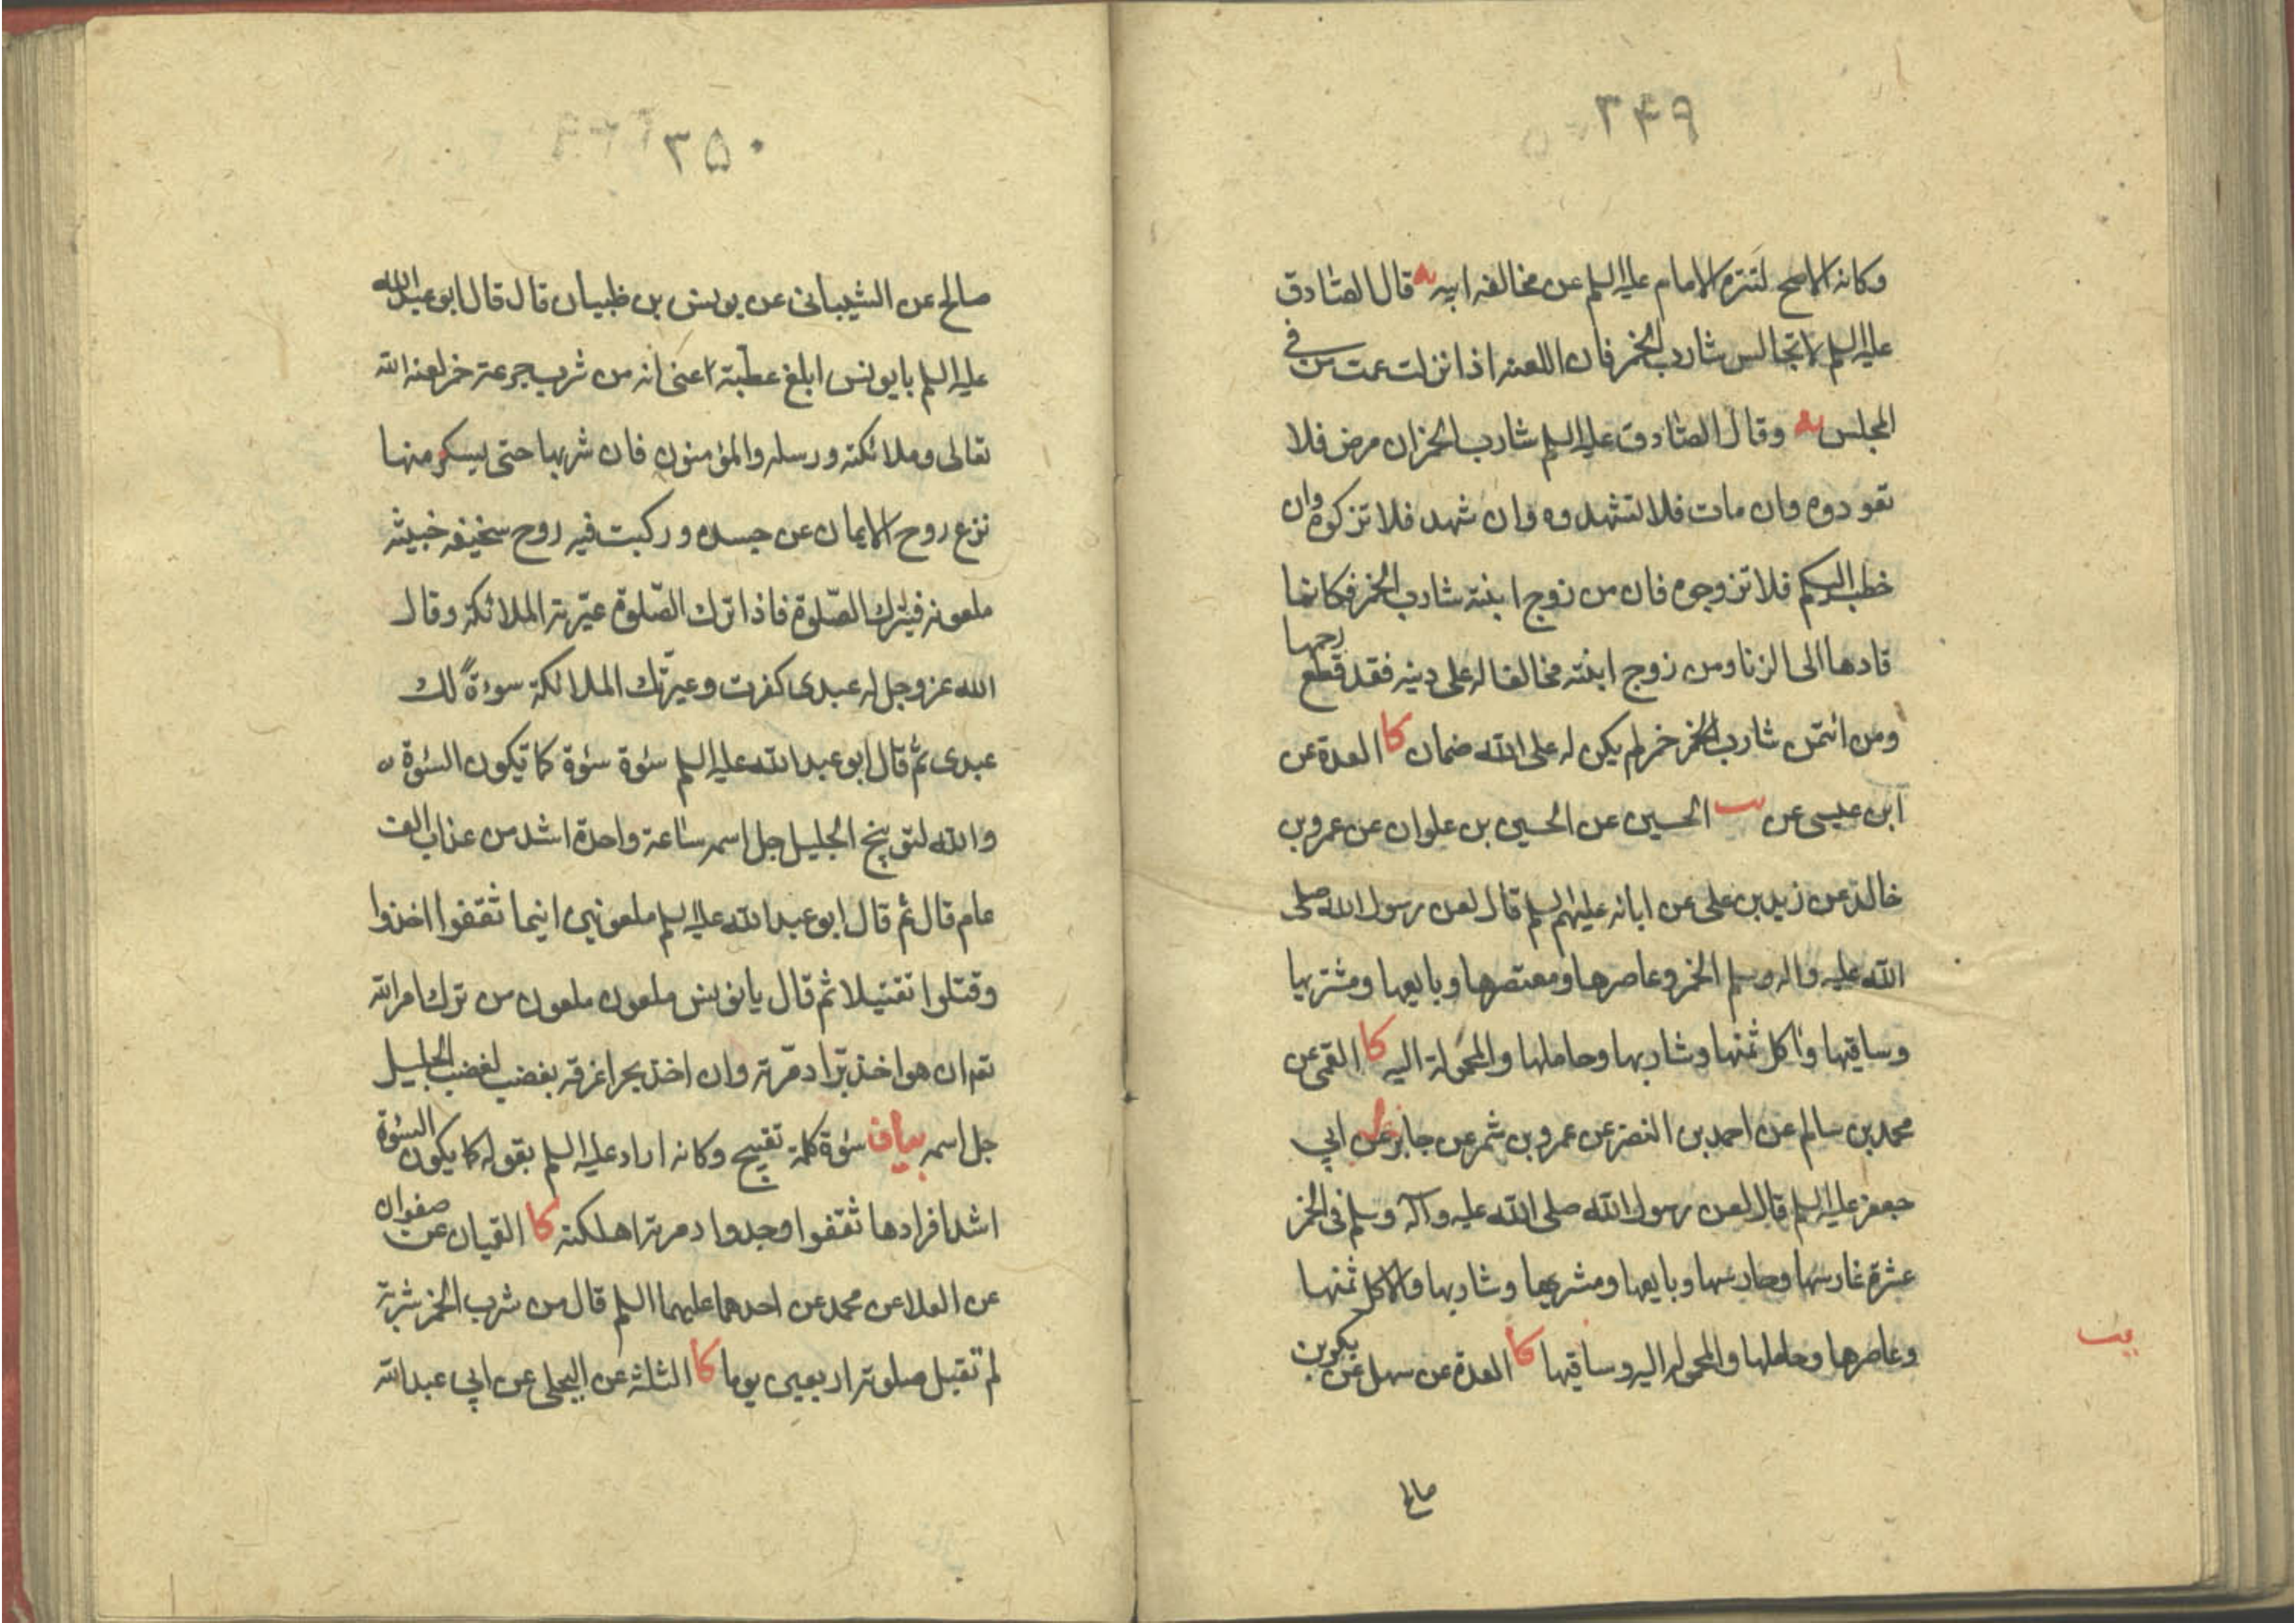 ٣۴٩
وكانه الاصح لتنزه الامام عليه السلم عن مخالفه ابيه يه قال الصّادق
عليه السلم لا تجالس شارب الخمر فان اللعنه اذا نزلت عمت من في
المجلس يه وقال الصّادق عليه السلم شارب الخمر ان مرض فلا
تعودوه وان مات فلا تشهدوه وان شهد فلا تزكوه وان
خطب اليكم فلا تزوجوه فان من زوج ابنته شارب الخمر فكانما
قادها الى الزنا ومن زوج ابنته مخالفا له على دينه فقد قطع رحمها
ومن ائتمن شارب الخمر لم يكن له على الله ضمان كا العدة عن
ابن عيسى عن يب الحسين عن الحسين بن علوان عن عمرو بن
خالد عن زيد بن على عن ابائه عليهم السلم قال لعن رسول الله صلى
الله عليه واله وسلم الخمر وعاصرها ومعتصرها وبايعها ومشتريها
وساقيها واكل ثمنها وشاربها وحاملها والمحمولة اليه كا القمى عن
محمد بن سالم عن احمد بن النضر عن عمرو بن شمر عن جابر عن ابي
جعفر عليه السلم قال لعن رسول الله صلى الله عليه وآله وسلم في الخمر
عشرة غارسها وحارسها وبايعها ومشتريها وشاربها والاكل ثمنها
وعاصرها وحاملها والمحموله اليه وساقيها كا العدة عن سهل عن بكر بن
يب
صالح
٣۵٠
صالح عن الشيباني عن يونس بن ظبيان قال قال ابو عبد الله
عليه السلم يا يونس ابلغ عطية عنى انه من شرب جرعة خمر لعنه الله
تعالى وملائكته ورسله والمؤمنون فان شربها حتى يسكر منها
نزع روح الايمان عن جسده وركبت فيه روح سخيفه خبيثه
ملعونه فيترك الصّلوة فاذا ترك الصّلوة عيّرته الملائكة وقال
الله عز وجل له عبدى كفرت وعيّرتك الملائكة سوءة لك
عبدى ثم قال ابو عبد الله عليه السلم سئوة سئوة كما تكون السئوة
والله لتوبيخ الجليل جل اسمه ساعة واحدة اشد من عذاب الف
عام قال ثم قال ابو عبد الله عليه السلم ملعونين اينما ثقفوا اخذوا
وقتلوا تقتيلا ثم قال يا يونس ملعون ملعون من ترك امر الله
تع ان هو اخذ برّا دمّرته وان اخذ بحرا غرقه بغضب لغضب الجليل
جل اسمه بيان سئوة كلمة تقبيح وكانه اراد عليه السلم بقوله كما يكون السئوة
اشد افرادها ثقفوا وجدوا دمرته اهلكته كا القيان عن صفوان
عن العلا عن محمد عن احدهما عليهما السلم قال من شرب الخمر شربة
لم تقبل صلوته اربعين يوما كا الثلثة عن البجلى عن ابي عبد الله